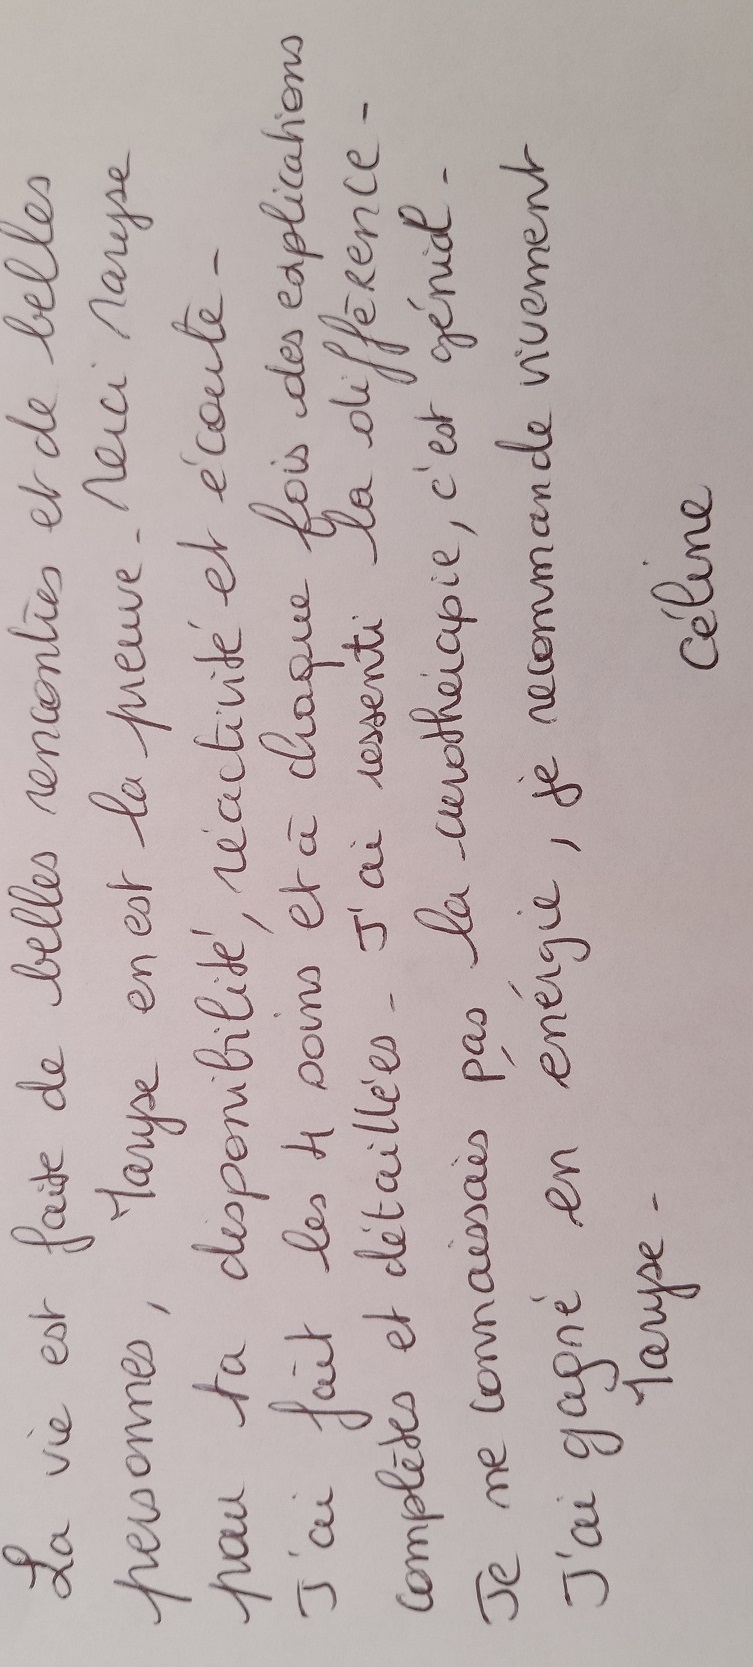 La vie est faite de belles rencontres et de belles
personnes, Maryse en est la preuve. Merci Maryse
pour ta disponibilité, réactivité et écoute -
J'ai fait les 4 soins et à chaque fois des explications
complètes et détaillées - J'ai ressenti la différence -
Je ne connaissais pas la curothérapie, c'est génial -
J'ai gagné en énérgie, je recommande vivement
Maryse -
Céline